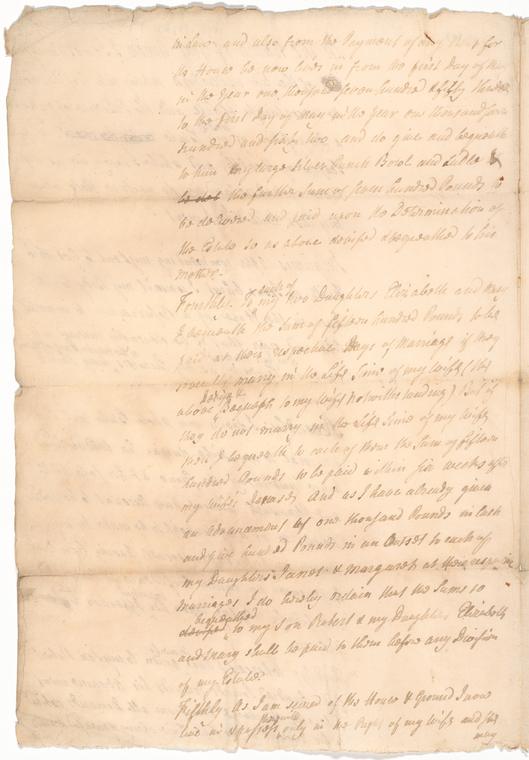 in Law and also from the Payment of any Rent for
the House he now lives in from the first Day of May
in the Year one thousand seven hundred & fifty three
to the first Day of May in the Year one thousand seven
hundred and sixty two and do give and bequeath
to him my large Silver Punch Bowl and Ladle &
the further Sum of seven hundred Pounds to
be delivered and paid upon the Determination of
the Estate so as above devised & bequeathed to his
mother.
Fourthly. To each of my two Daughters Elizabeth and Mary
I bequeath the Sum of fifteen hundred Pounds to be
paid at their respective Days of Marriage if they
marry in the Life Time of my Wife (the
above Devise & Bequest to my Wife notwithstanding) But if
they do not marry in the Life Time of my Wife
then I bequeath to each of them the Sum of fifteen
hundred Pounds to be paid within six weeks after
my Wife's Decease And as I have already given
an advancement of one thousand Pounds in Cash
and five hundred Pounds in an Outset to each of
my Daughters Janet & Margaret at their respective
marriages I do hereby ordain that the Sums so
devised bequeathed to my Son Robert & my Daughters Elizabeth
and Mary shall be paid to them before any Division
of my Estate.
Fifthly. As I am seized of the House & Ground I now
live in & possess only in the Right of my Wife and she
may